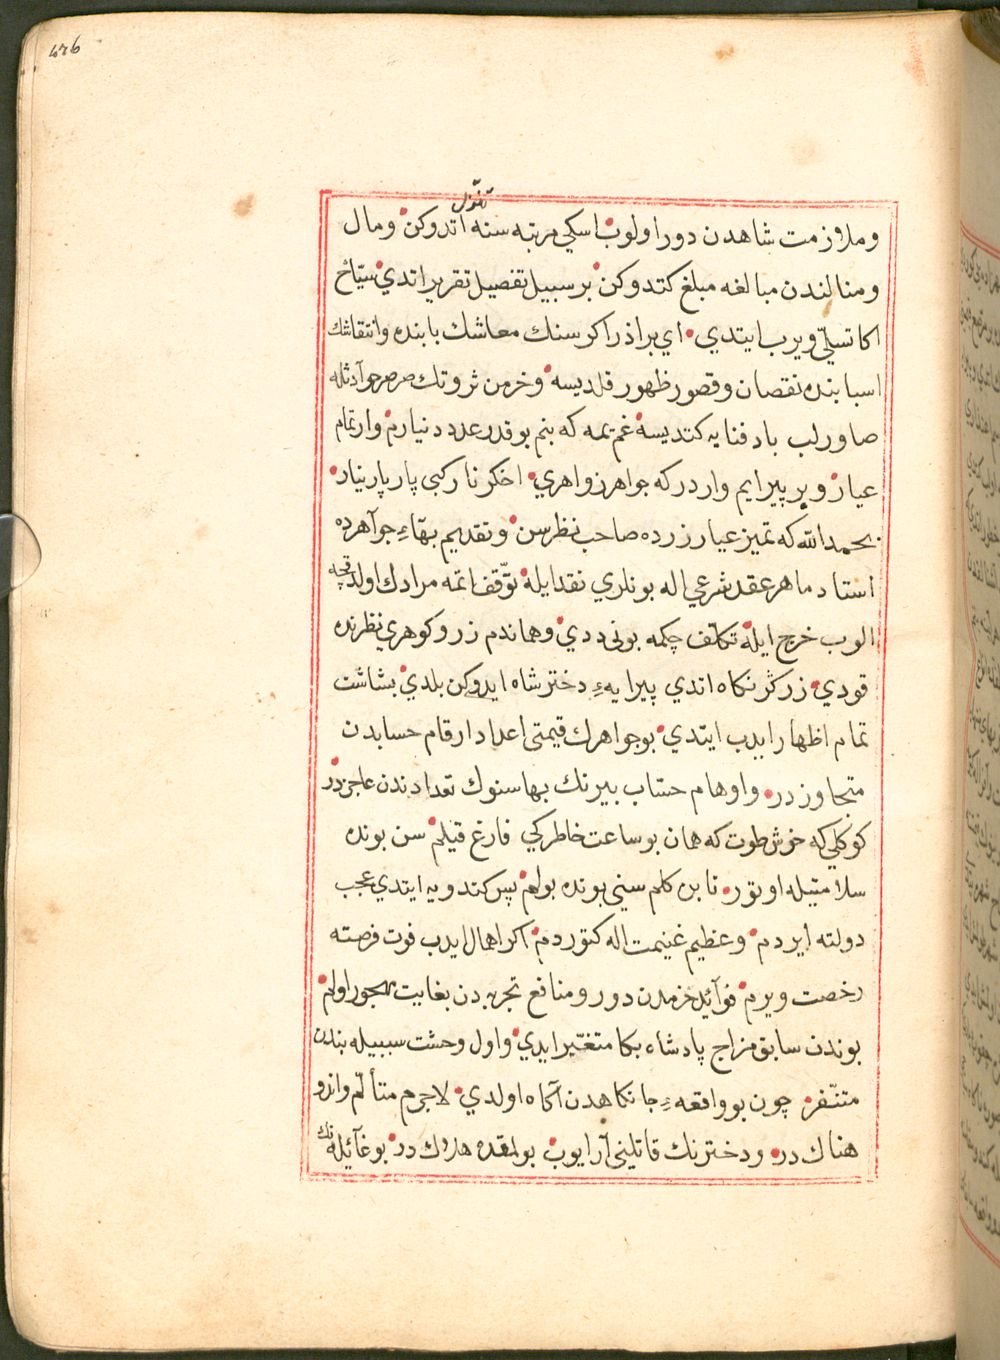 476
تنزّل
وملازمت شاهدن دور اولوب اسكي مرتبه سنه اتدوكن ومال
ومنالندن مبالغه مبلغ كتدوكن بر سبيل تفصيل تقرير اتدي سيّاح
اكا تسلّي ويرب ايتدي اي براذر اكر سنك معاشك بابنده وانتقاشك
اسبابنده نقصان وقصور ظهور قلديسه وخرمن ثروتك صرصر حوآدثله
صاورلب باد فنايه كتديسه غم يمه كه بنم بو قدر عدد دنيارم وار تمام
عيار وبر پيرايم واردر كه جواهر زواهري اخكر نار كبي پار پار ينار
بحمد الله كه تميز عيار زرده صاحب نظرسن وتقديم بهاءِ جوآهرده
استاد ماهر عقد شرعي اله بونلري نقد ايله توّقف اتمه مرادك اولدقچه
الوب خرج ايله تكلّف چكمه بوني ددي وهماندم زر وكوهري نظرنده
قودي زركر نكاه اتدي پيرايهءِ دختر شاه ايدوكن بلدي بشاشت
تمام اظهار ايدب ايتدي بو جواهرك قيمتي اعداد ارقام حسابدن
متجاوزدر واوهام حسّاب بيرنك بهاسنوك تعدادندن عاجزدر
كوكلي كه خوش طوت كه همان بو ساعت خاطركي فارغ قيلم سن بونده
سلامتيله اوتور تا بن كلم سني بونده بولم پس كندويه ايتدي عجب
دولته ايردم وعظيم غنيمت اله كتوردم اكر اهمال ايدب فوت فرصته
رخصت ويرم فوآئد خرمدن دور ومنافع تجربه دن بغايت مهجور اولم
بوندن سابق مزاج پادشاه بكا متغيّر ايدي واول وحشت سببيله بندن
متنّفر چون بو واقعهءِ جانكاهدن آكاه اولدي لاجرم متألّم واندو
هناك در ودخترنك قاتليني آرايوب بولمقده هلاك در بو غآئيله نك